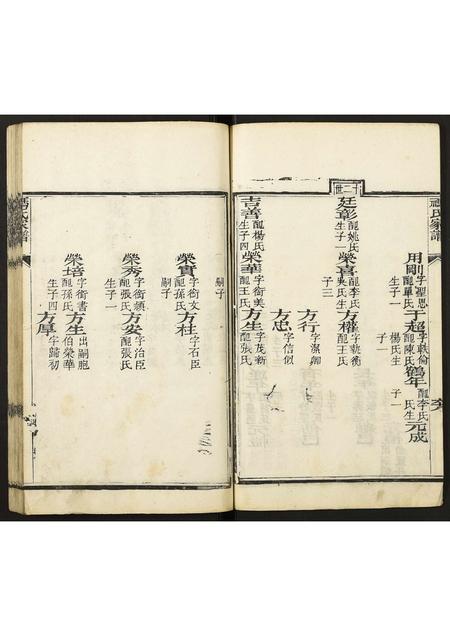 氏家譜
用剛 字聖思 配單氏 生子一
于超 字軼倫 配陳氏 楊氏生子一
鶴年 配李氏 生子一
元成
十二世
廷彰 配姚氏 生子一
榮喜 配李氏 吳氏生子三
方權 字執衡 配王氏
方行 字潔卿
方忠 字信似
吉善 配楊氏 生子四
榮華 字銜美 配王氏
方生 字茂新 配張氏
嗣子
榮實 字銜文 配孫氏 嗣子
方柱 字石臣
榮秀 字銜穎 配張氏 生子一
方安 字治臣 配張氏
榮培 字銜書 配孫氏 生子四
方生 出嗣胞伯榮華
方厚 字歸初
氏家譜